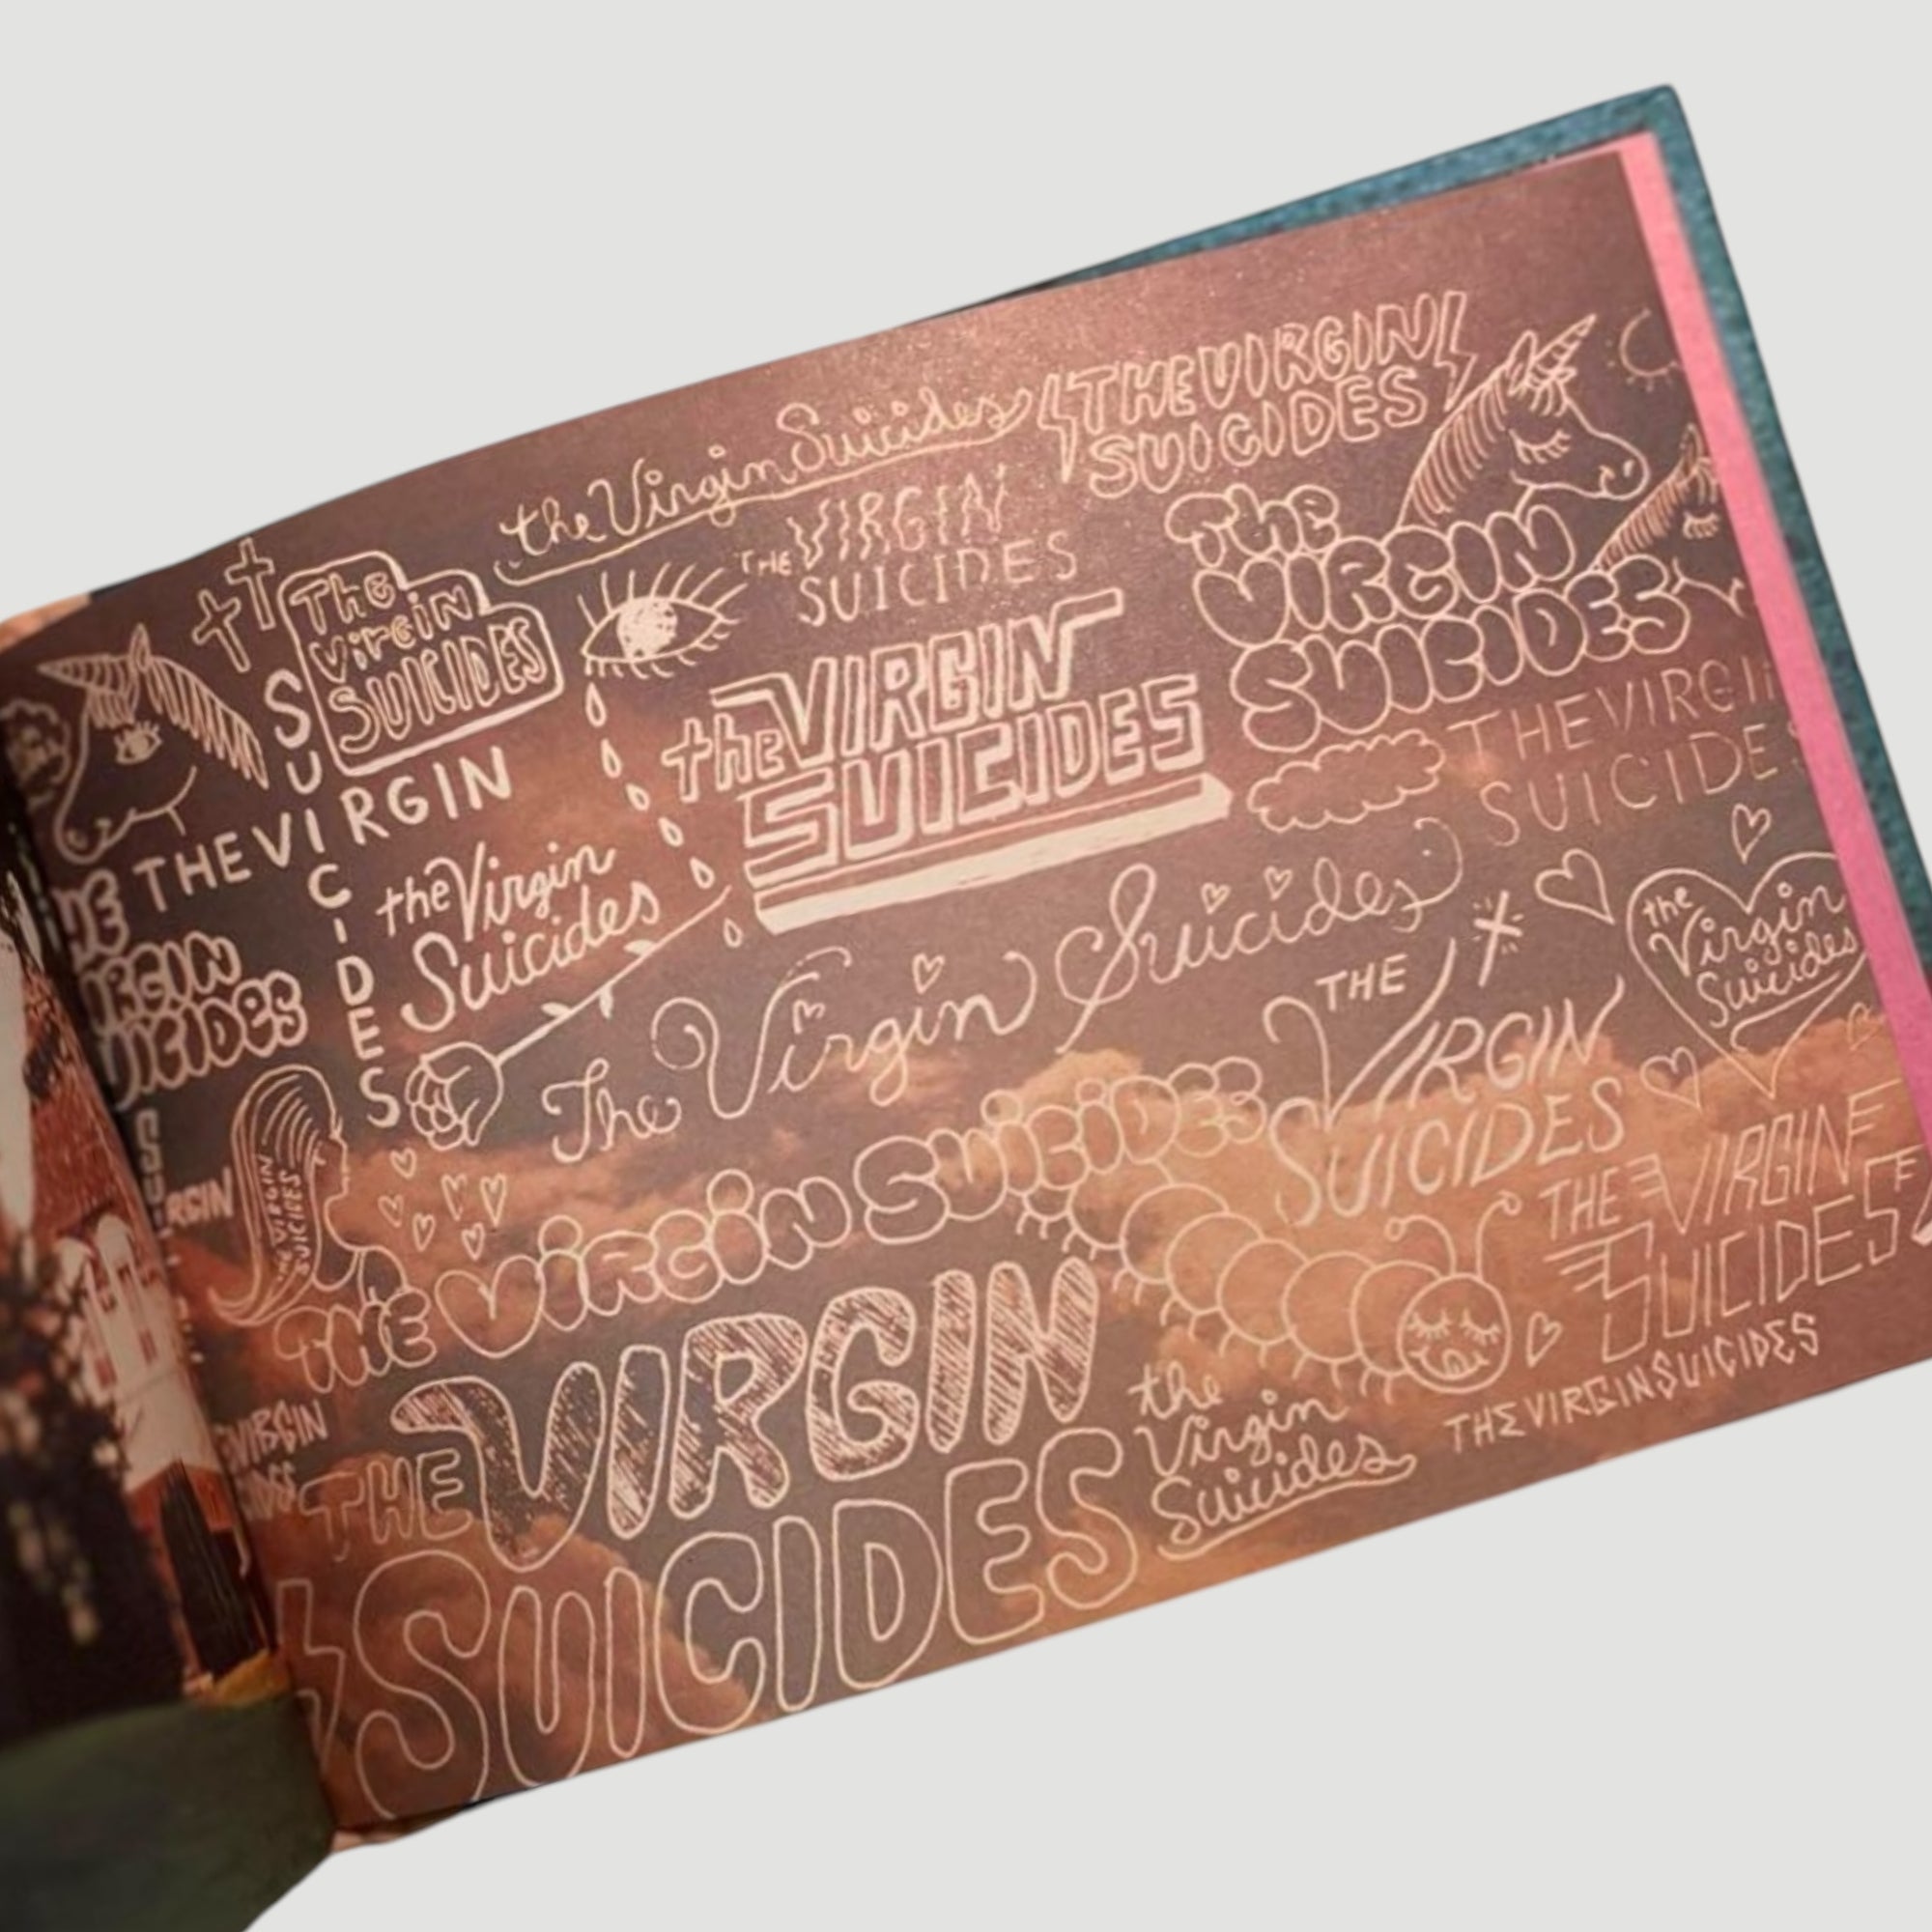 the Virgin Suicides
THE VIRGIN
SUICIDES
THE VIRGIN
SUICIDES
The
VIRGIN
SUICIDES
The
Virgin
SUICIDES
the VIRGIN
SUICIDES
THE VIRGIN
SUICIDES
THE VIRGI
SUICIDES
the Virgin
Suicides
The Virgin Suicides
the
Virgin
Suicides
THE
VIRGIN
SUICIDES
IRGIN
UICIDES
THE VIRGIN
SUICIDES
RGIN
THE VIRGIN SUICIDES
THE VIRGIN
SUICIDES
THE VIRGIN
SUICIDES
the
Virgin
Suicides
THE VIRGIN SUICIDES
VIRGIN